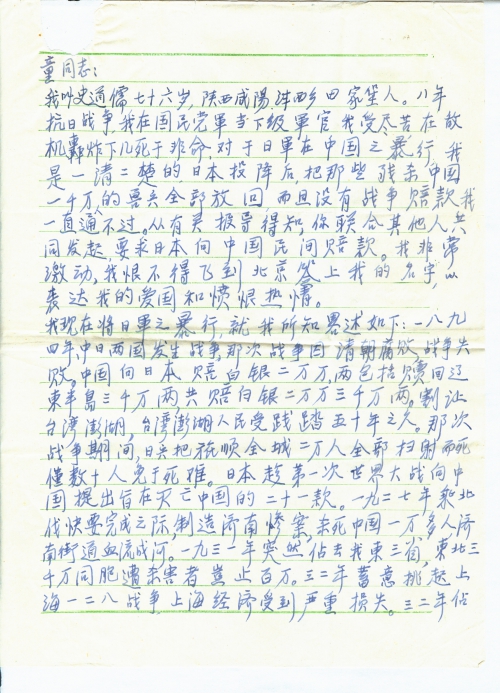 童同志：
我叫史通儒七十六岁，陕西咸陽沣西乡田家堡人。八年
抗日战争，我在国民党軍当下级軍官我受尽苦在敌
机轰炸下几死于非命，对于日軍在中国之暴行，我
是一清二楚的日本投降后把那些残杀中国
一千万的兽兵全部放回而且没有战争赔款我
一直通不过。从有关报导得知，你联合其他人共
同发起，要求日本向中国民间赔款。我非常
激动，我恨不得飞到北京签上我的名字，以
表达我的爱国和愤恨热情。
我现在将日軍之暴行，就我所知畧述如下：一八九
四年，中日两国发生战争，那次战争因清朝腐败，战争失
败。中国向日本赔白银二万万，两包括赎回辽
東半島三千万，两共赔白银二万万三千万两。割让
台湾澎湖，台湾澎湖人民受践踏五十年之久。那次
战争期间，日兵把旅顺全城二万人全部扫射而死
僅数十人免于死难。日本趁第一次世界大战向中
国提出旨在灭亡中国的二十一款。一九二七年我北
伐快要完成之际，制造济南惨案，杀死中国一万多人济
南街道血流成河。一九三一年突然佔去我東三省，東北三
千万同胞遭杀害者豈止百万。三二年蓄意挑起上
海一二八战争上海经济受到严重损失。三二年佔